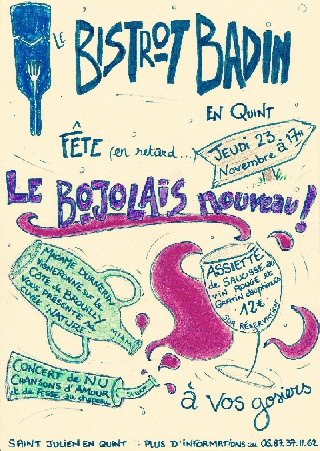 LE
BISTROT BADIN
EN QUINT
FÊTE (en retard...)
JEUDI 23
Novembre à 17H
LE BOJOLAIS nouveau!
MADAME
CÔTE de BROUILLY
VOUS PRÉSENTE SA
CUVÉE NATURE
ASSIETTE
de SAUCISSE au
VIN ROUGE et
GRATIN dauphinois
12€
sur RÉSERVATION
CONCERT de NU
CHANSONS D'AMOUR
et de FESSE au chapeau
à Vos gosiers
SAINT JULIEN EN QUINT : PLUS D'INFORMATIONS au 06.87.37.11.62